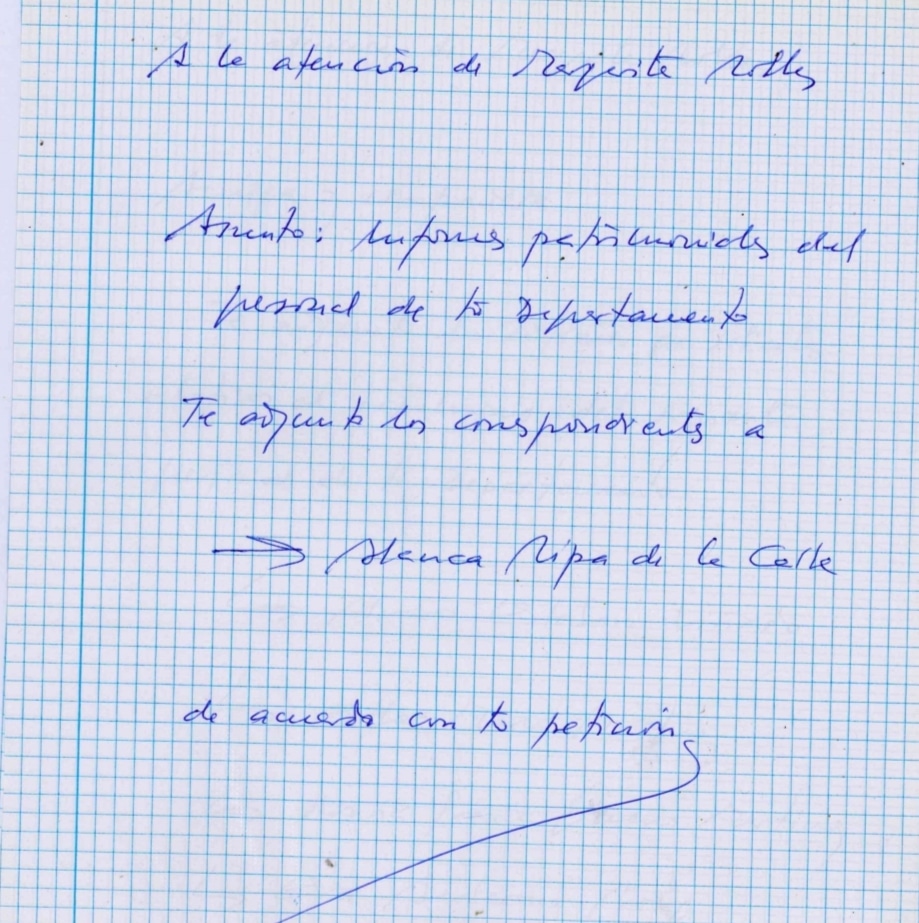 A la atención de Margarita
Asunto: Informes patrimoniales del
personal de tu Departamento
Te adjunto los correspondientes a
→ Blanca Ripa de la Calle
de acuerdo con tu petición